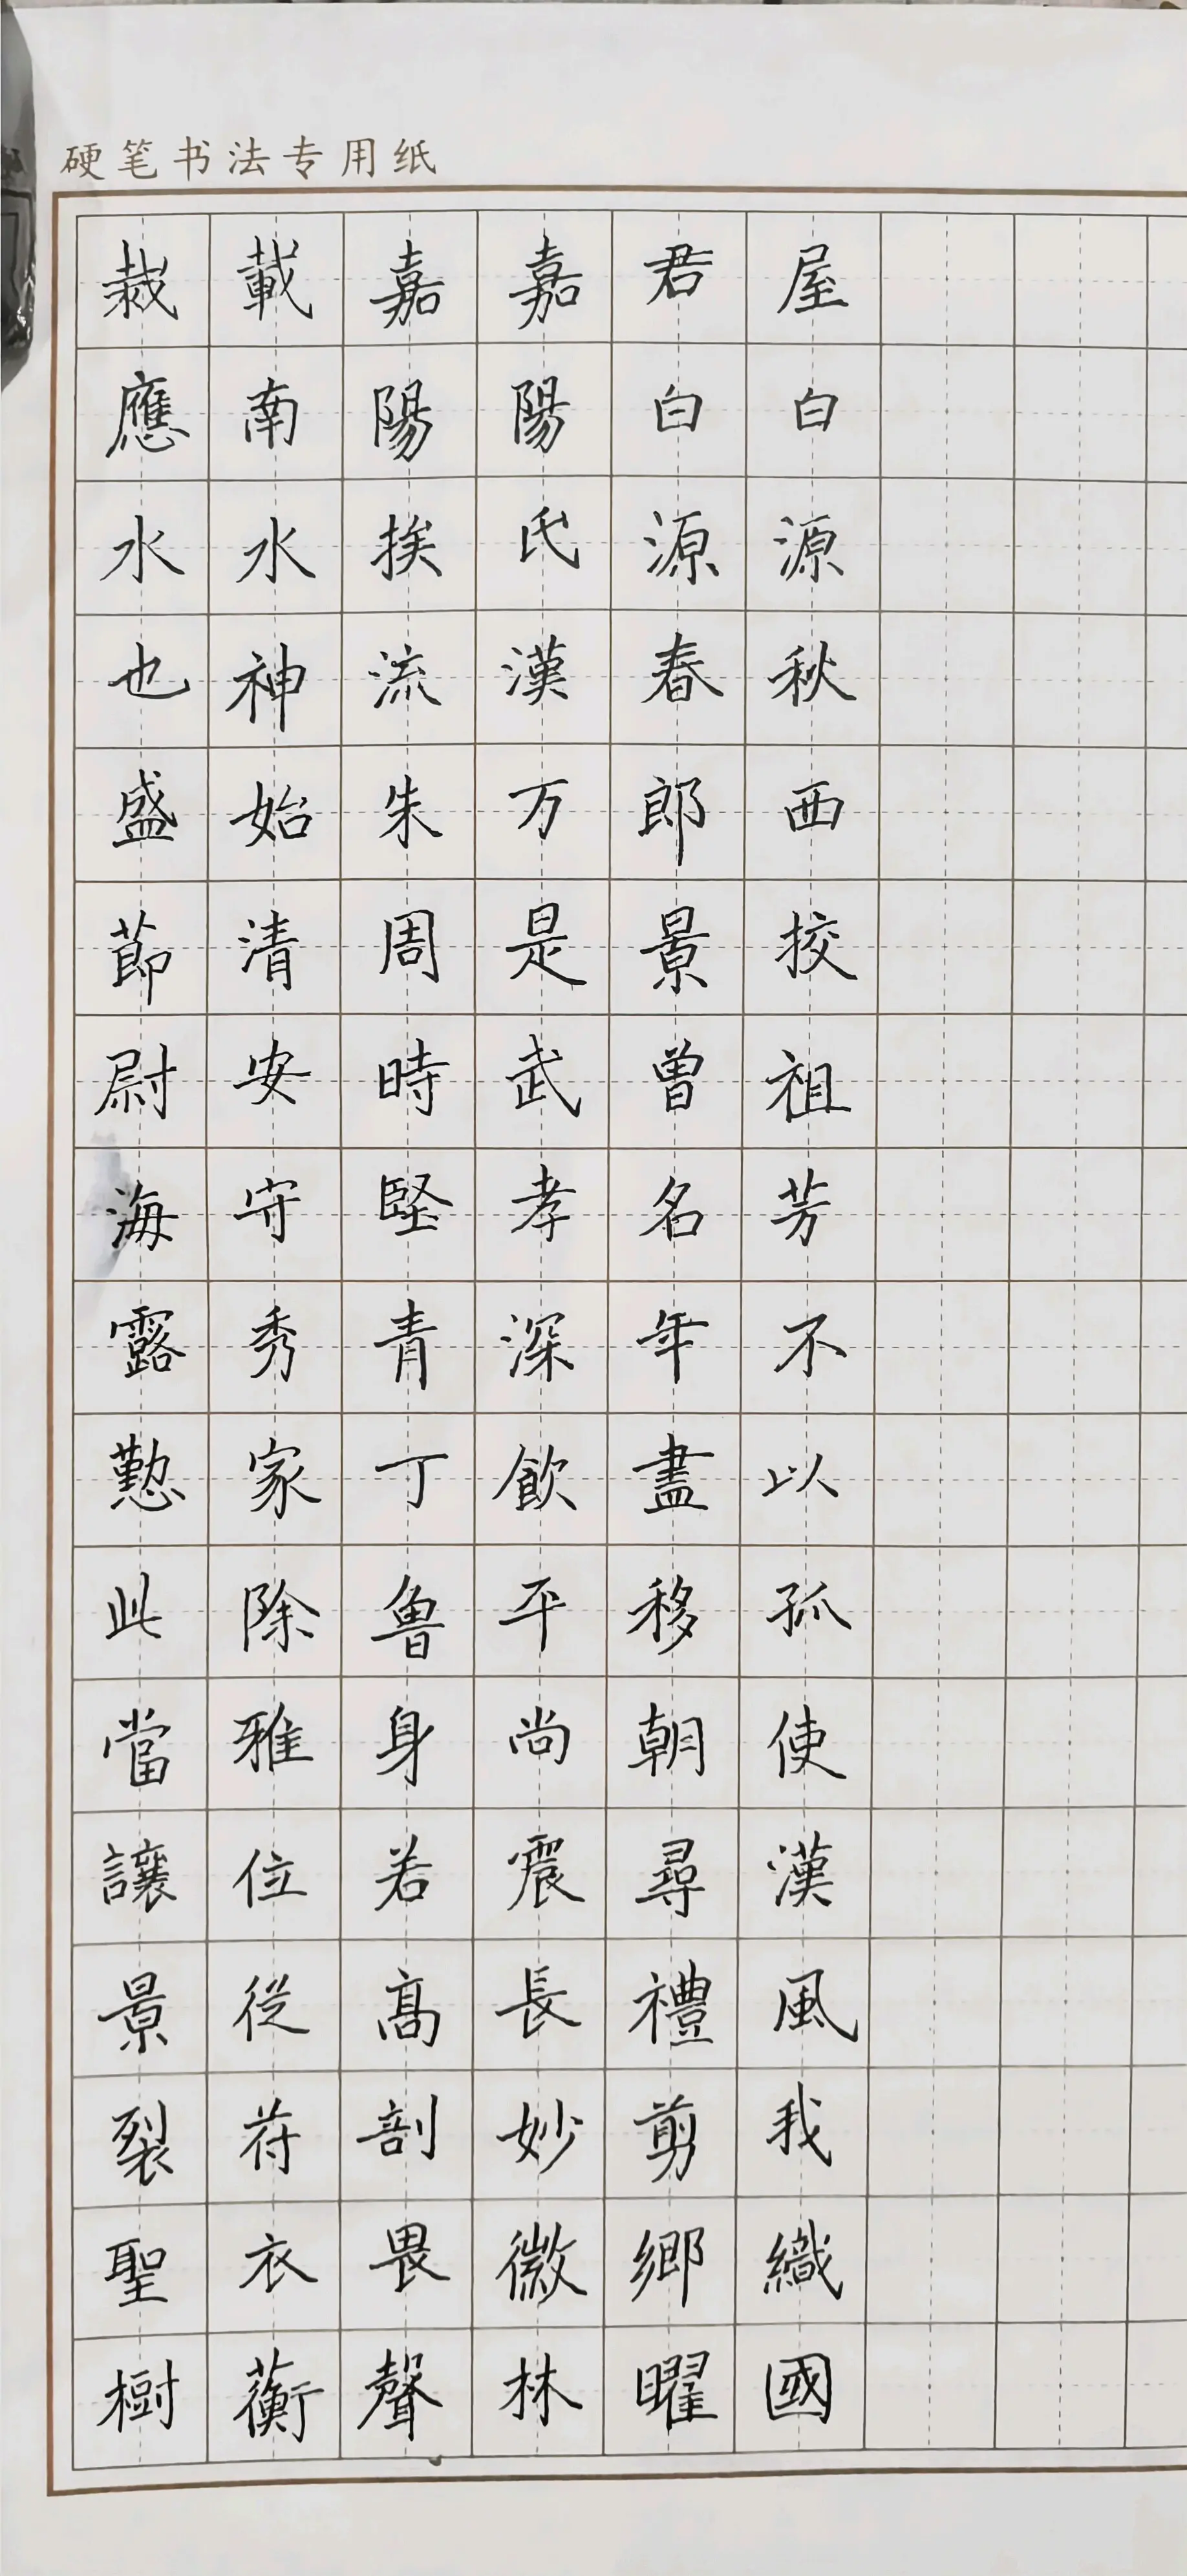 硬笔书法专用纸
栽應水也盛莭尉海露懃此當讓景裂聖樹
載南水神始清安守秀家除雅位從苻衣蘅
嘉陽挨流朱周時堅青丁魯身若髙剖畏聲
嘉陽氏漢万是武孝深飲平尚震長妙微林
君白源春郎景曾名年盡移朝尋禮剪鄉曜
屋白源秋西挍祖芳不以孤使漢風我織國